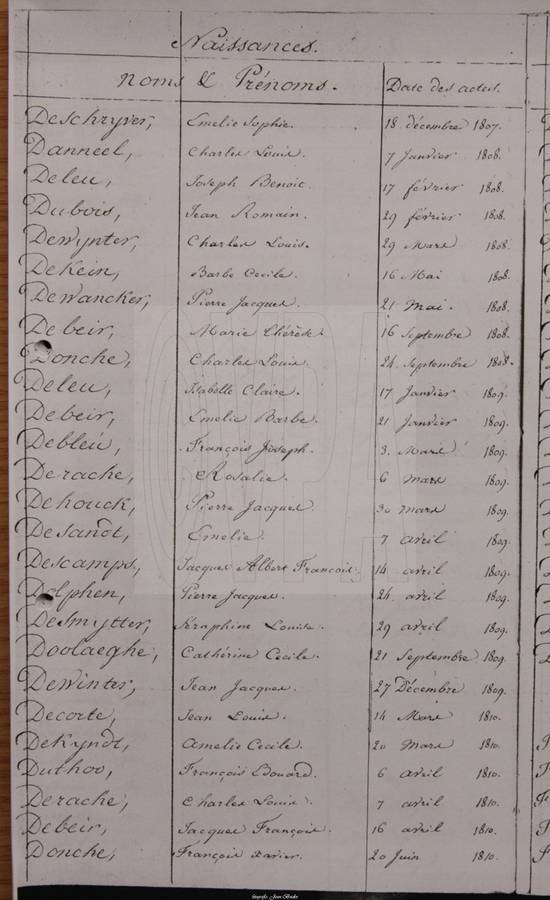 Naissances.
Noms & Prénoms. Date des actes.
Deschryver, Emelie Sophie. 18 décembre 1807.
Danneel, Charles Louis. 7 Janvier 1808.
Deleu, Joseph Benoit. 17 février 1808.
Dubois, Jean Romain. 29 février 1808.
Dewynter, Charles Louis. 29 Mars 1808.
Dekein, Barbe Cecile. 16 Mai 1808.
Dewancker, Pierre Jacques. 21 Mai. 1808.
Debeir, Marie Thérèse 16 Septembre 1808.
Donche, Charles Louis. 24 Septembre 1808.
Deleu, Isabelle Claire. 17 Janvier 1809.
Debeir, Emelie Barbe. 21 Janvier 1809.
Debleu, François Joseph. 3. Mars 1809.
Derache, Rosalie. 6 mars 1809.
Dehouck, Pierre Jacques. 30 mars 1809.
Desandt, Emelie. 7 avril 1809.
Descamps, Jacques Albert Francois. 14 avril 1809.
Dolphen, Pierre Jacques. 24 avril 1809.
Desmytter, Séraphine Louise. 29 avril 1809.
Doolaeghe, Cathérine Cecile. 21 Septembre 1809.
Dewinter, Jean Jacques. 27 Décembre 1809.
Decorte, Jean Louis. 14 Mars 1810.
DeKyndt, Amelie Cecile. 20 Mars 1810.
Duthoo, François Edouard. 6 avril 1810.
Derache, Charles Louis. 7 avril 1810.
Debeir, Jacques François. 16 avril 1810.
Donche, François Xavier. 20 Juin 1810.